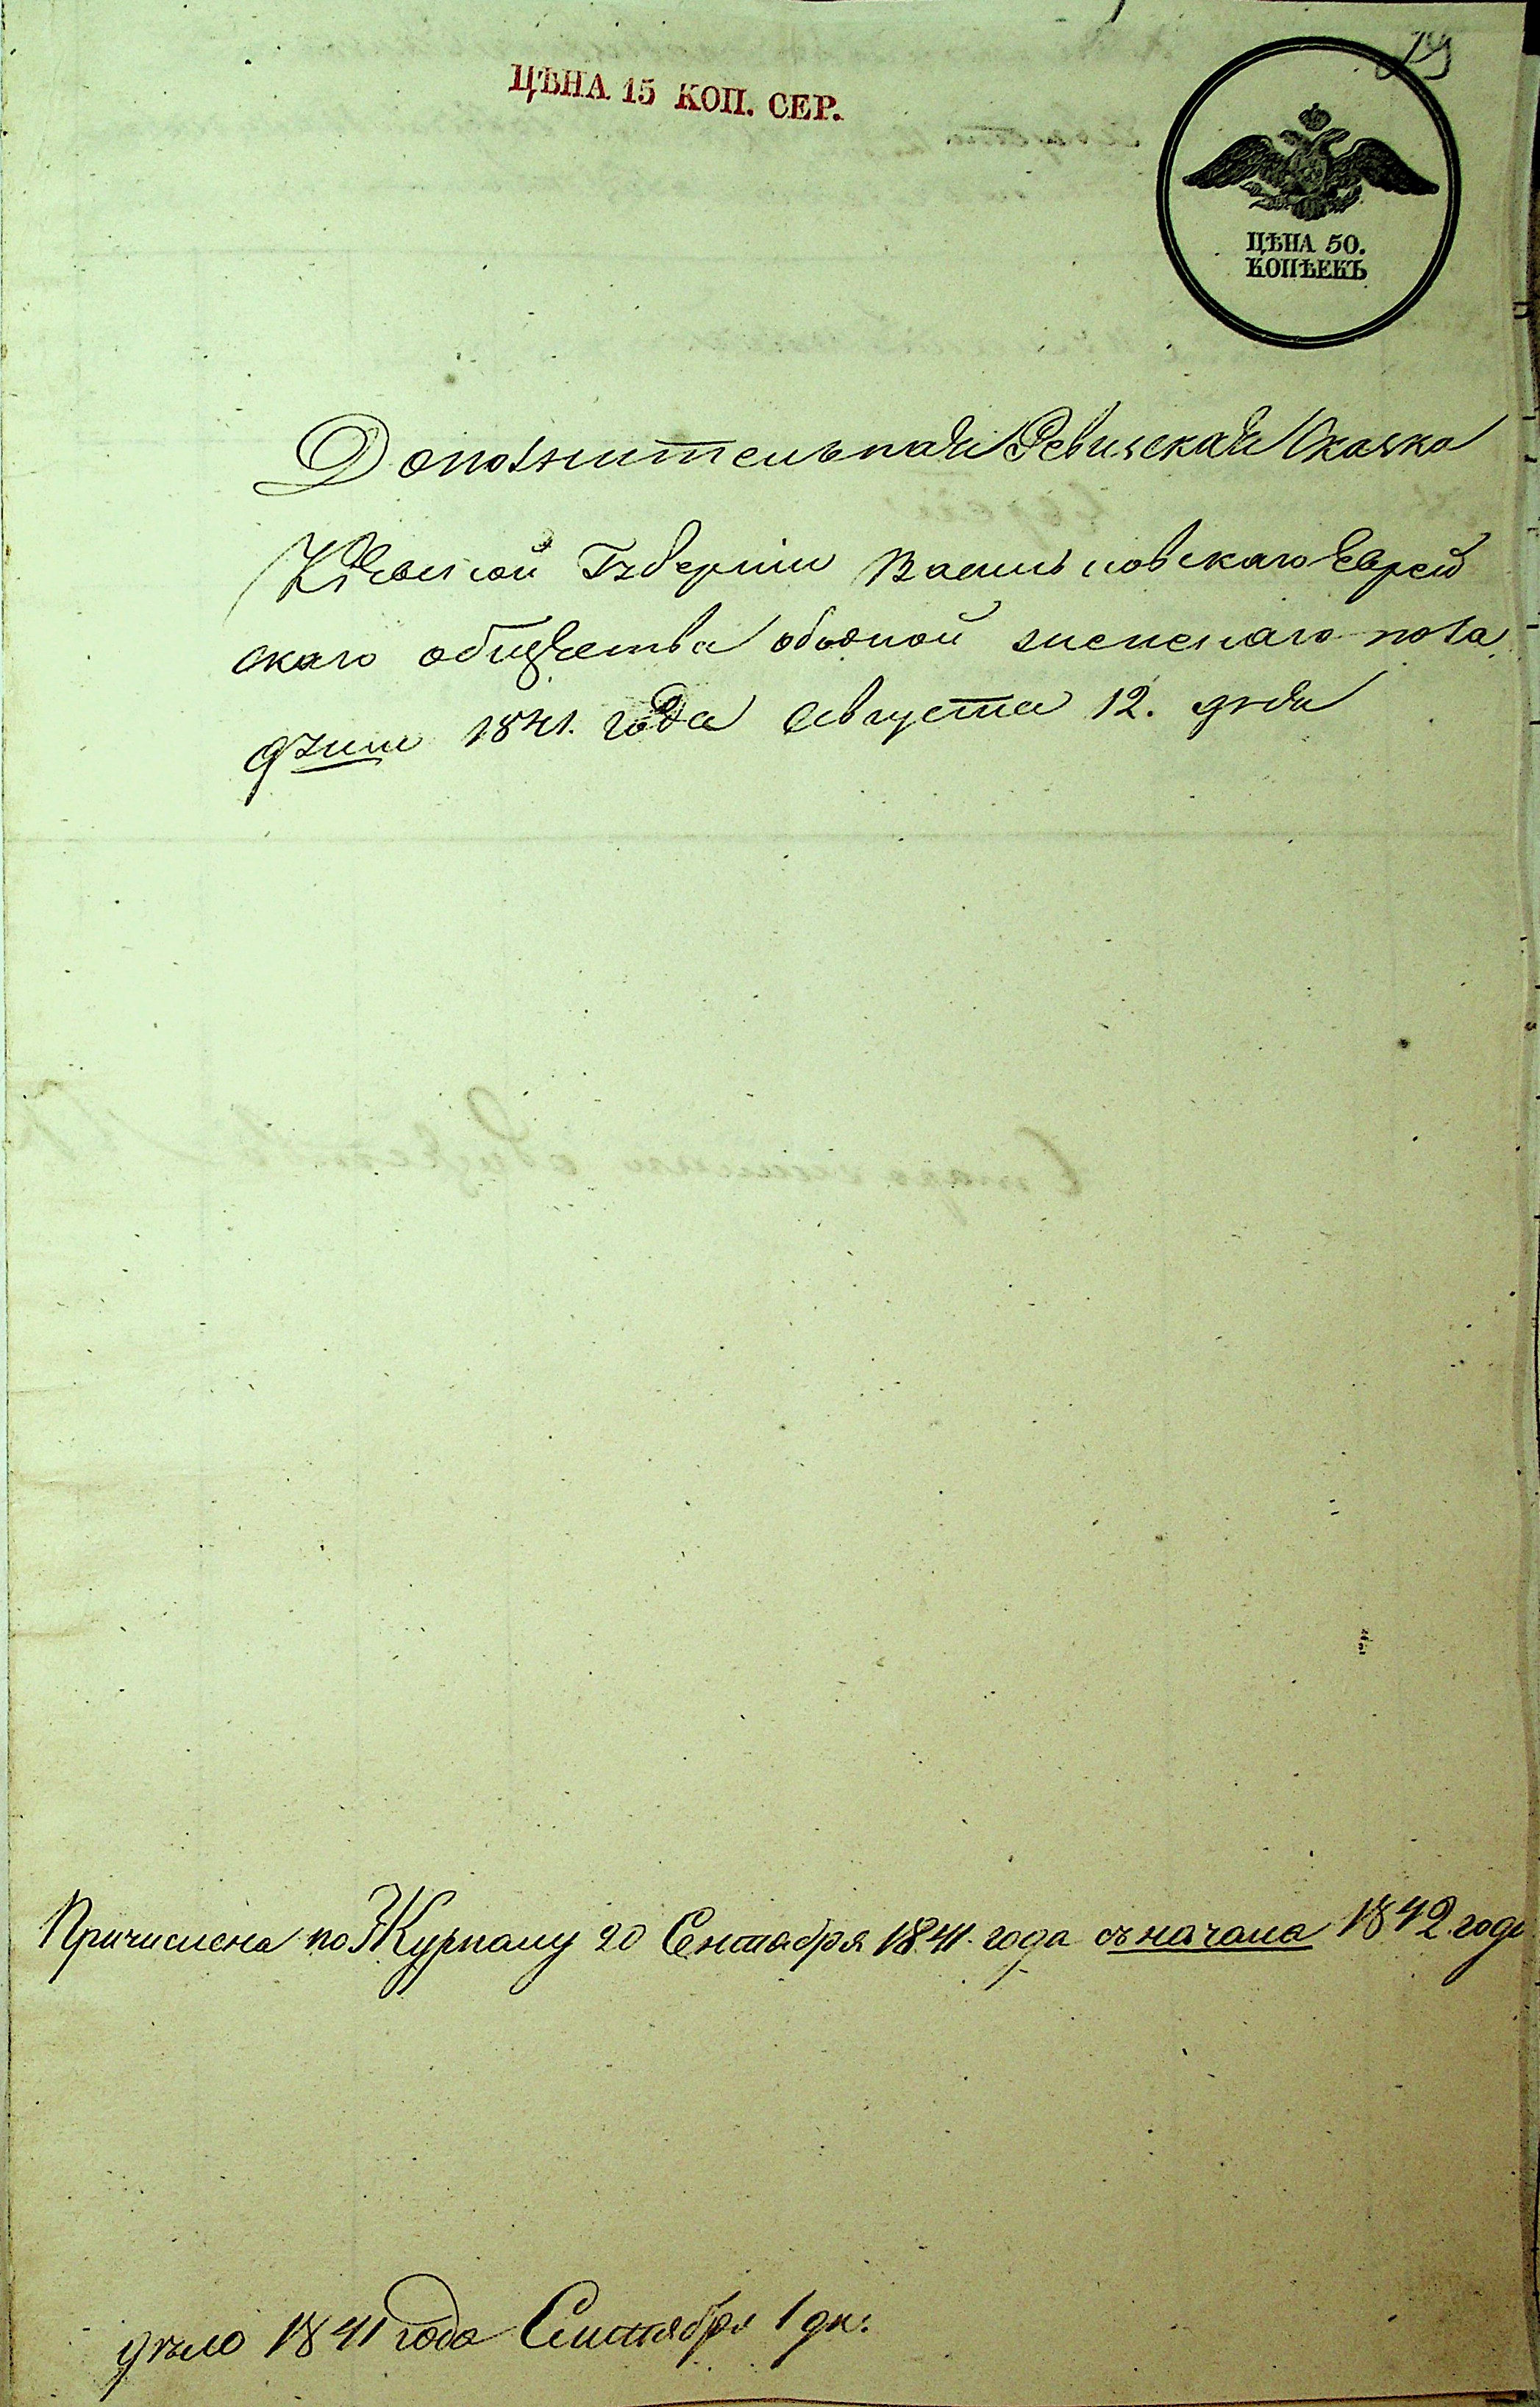 ЦѢНА 15 КОП. СЕР.
ЦѢНА 50.
КОПѢЕКЪ
Дополнительная Ревизская Сказка
Кіевской Губерніи Васильковскаго Еврей
скаго общества обоюной женскаго пола
души 1841. года Августа 12. дня
Причислена по Журналу 20 Сентября 1841. года съ начала 1842 года
дѣло 1841 года Сентября 1 дн.